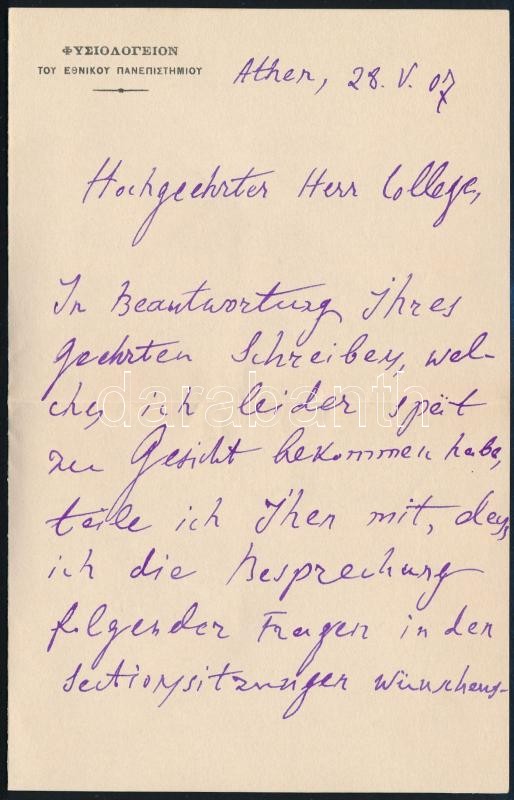 ΦΥΣΙΟΛΟΓΕΙΟΝ
ΤΟΥ ΕΘΝΙΚΟΥ ΠΑΝΕΠΙΣΤΗΜΙΟΥ
Athen, 28. V. 07
Hochgeehrter Herr College,
In Beantwortung Ihres
geehrten Schreibens, wel-
ches ich leider spät
zu Gesicht bekommen habe,
teile ich Ihen mit, dass
ich die Besprechung
folgender Fragen in den
Sectionssitzungen wünschens-
darabanth